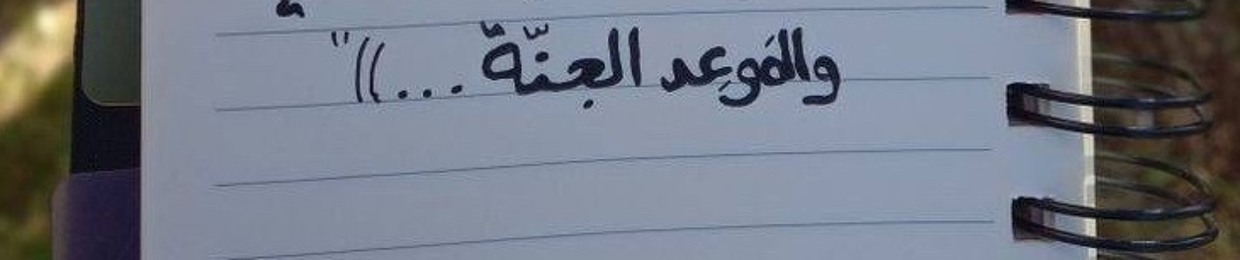 والمَوعِد الجنّة ...))"